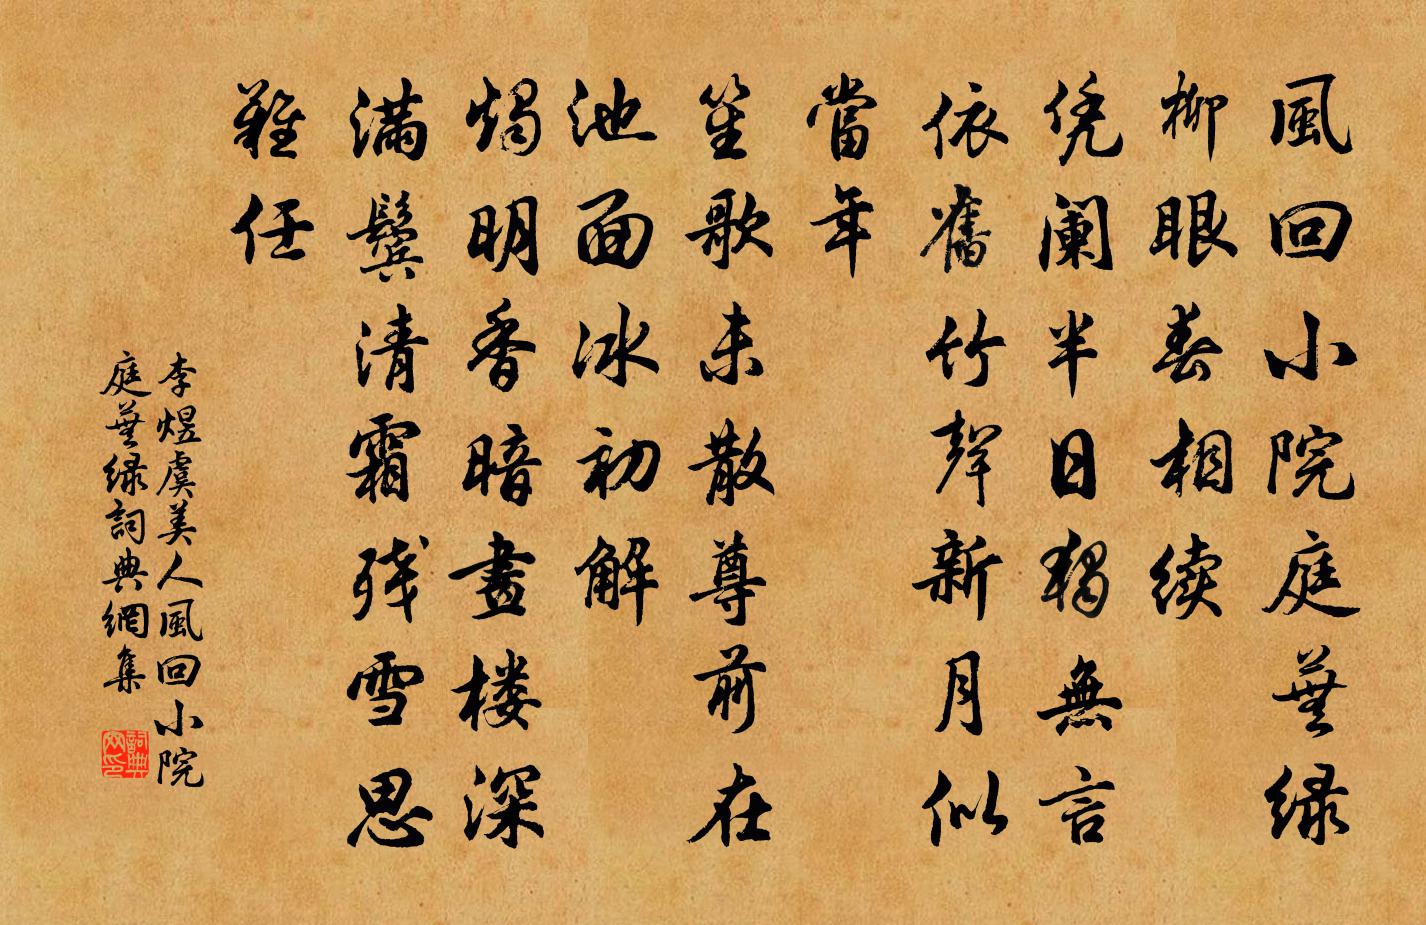 風回小院庭蕪绿
柳眼春相续
凭阑半日独無言
依舊竹聲新月似
當年
笙歌未散尊前在
池面冰初解
燭明香暗畫楼深
满鬓清霜残雪思
難任
李煜虞美人風回小院
庭蕪绿詞典網集
詞典
网印